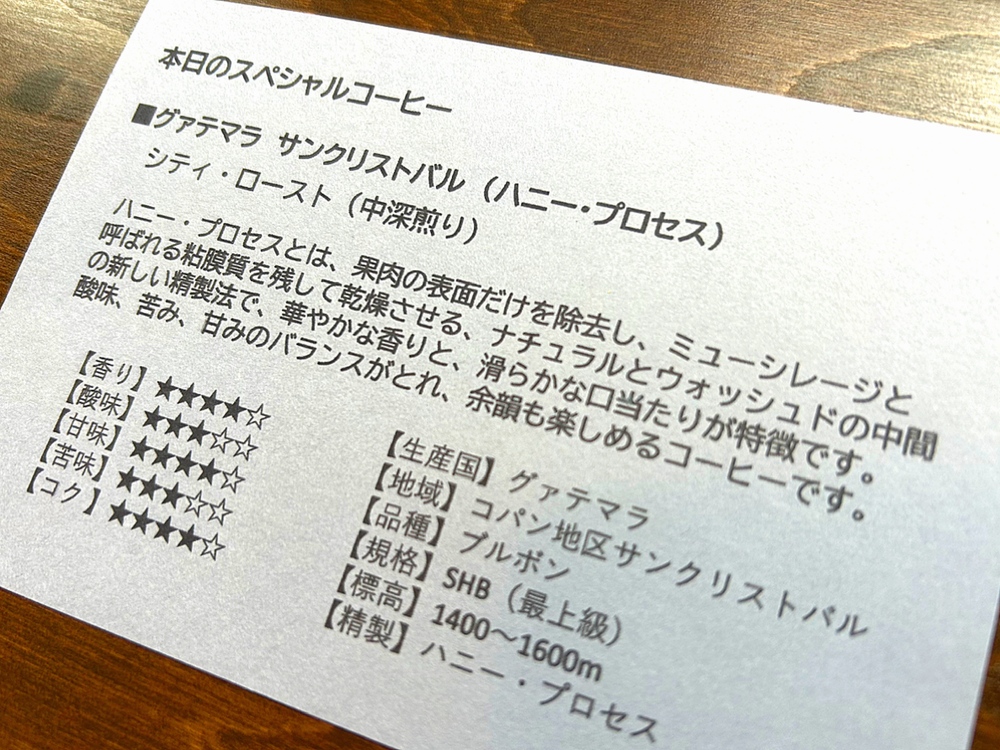 本日のスペシャルコーヒー
■グァテマラ サンクリストバル（ハニー・プロセス）
シティ・ロースト（中深煎り）
ハニー・プロセスとは、果肉の表面だけを除去し、ミューシレージと
呼ばれる粘膜質を残して乾燥させる、ナチュラルとウォッシュドの中間
の新しい精製法で、華やかな香りと、滑らかな口当たりが特徴です。
酸味、苦み、甘みのバランスがとれ、余韻も楽しめるコーヒーです。
【香り】★★★★☆
【酸味】★★★☆☆
【甘味】★★★★☆
【苦味】★★★☆☆
【コク】★★★★☆
【生産国】グァテマラ
【地域】コパン地区サンクリストバル
【品種】ブルボン
【規格】SHB（最上級）
【標高】1400～1600m
【精製】ハニー・プロセス